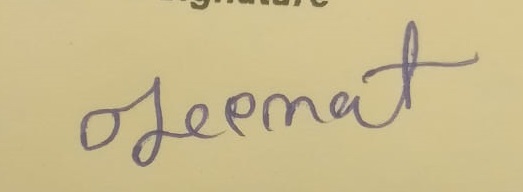 Signature
oJeemat